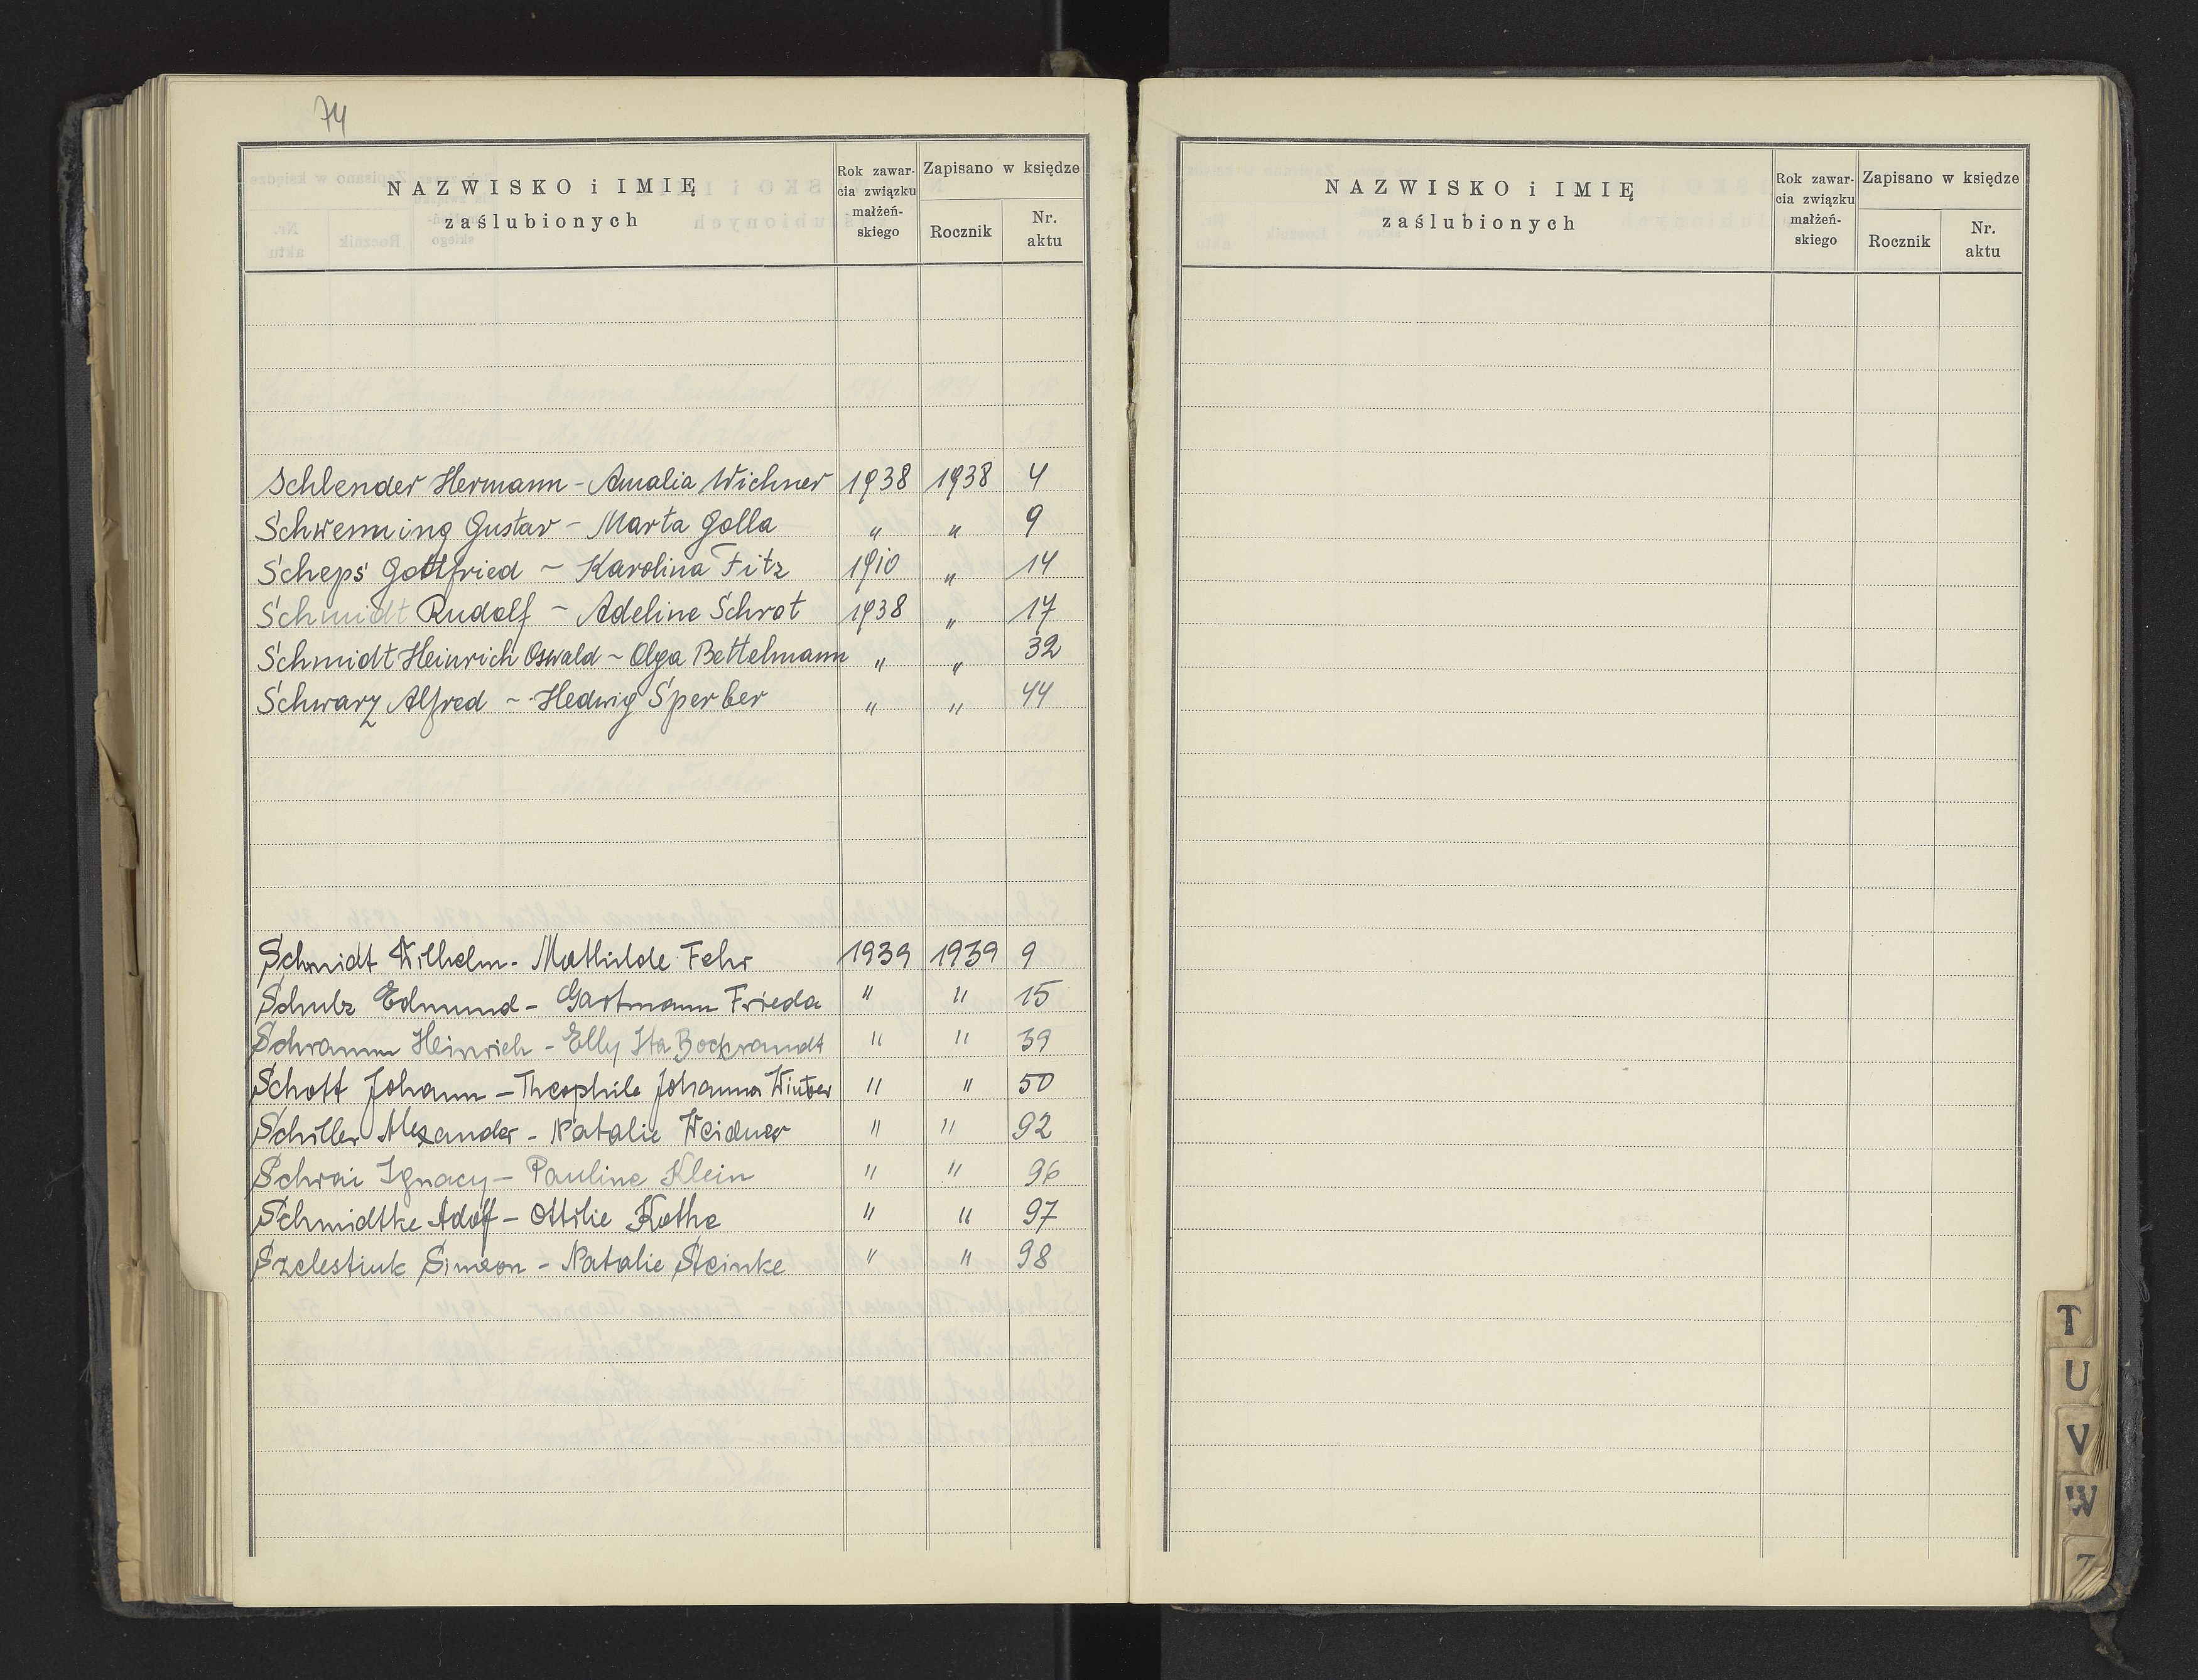 74
NAZWISKO i IMIĘ
zaślubionych
Rok zawar-
cia związku
małżeń-
skiego
Zapisano w księdze
Rocznik
Nr.
aktu
Schlender Hermann - Amalia Wichner 1938 1938 4
Schwenning Gustav - Marta Golla " " 9
Scheps Gottfried ~ Karolina Fitz 1910 " 14
Schmidt Rudolf ~ Adeline Schrot 1938 " 17
Schmidt Heinrich Oswald ~ Olga Bettelmann " " 32
Schwarz Alfred ~ Hedwig Sperber " " 44
Schmidt Wilhelm - Mathilde Fehr 1939 1939 9
Schulz Edmund - Gartmann Frieda " " 15
Schramm Heinrich - Elly Ita Bockrandt " " 39
Schott Johann - Theophile Johanna Winter " " 50
Schiller Alexander - Natalie Weidner " " 92
Schrai Ignacy - Pauline Klein " " 96
Schmidtke Adolf - Ottilie Kothe " " 97
Szelestiuk Simeon - Natalie Steinke " " 98
NAZWISKO i IMIĘ
zaślubionych
Rok zawar-
cia związku
małżeń-
skiego
Zapisano w księdze
Rocznik
Nr.
aktu
T
U
V
W
Z